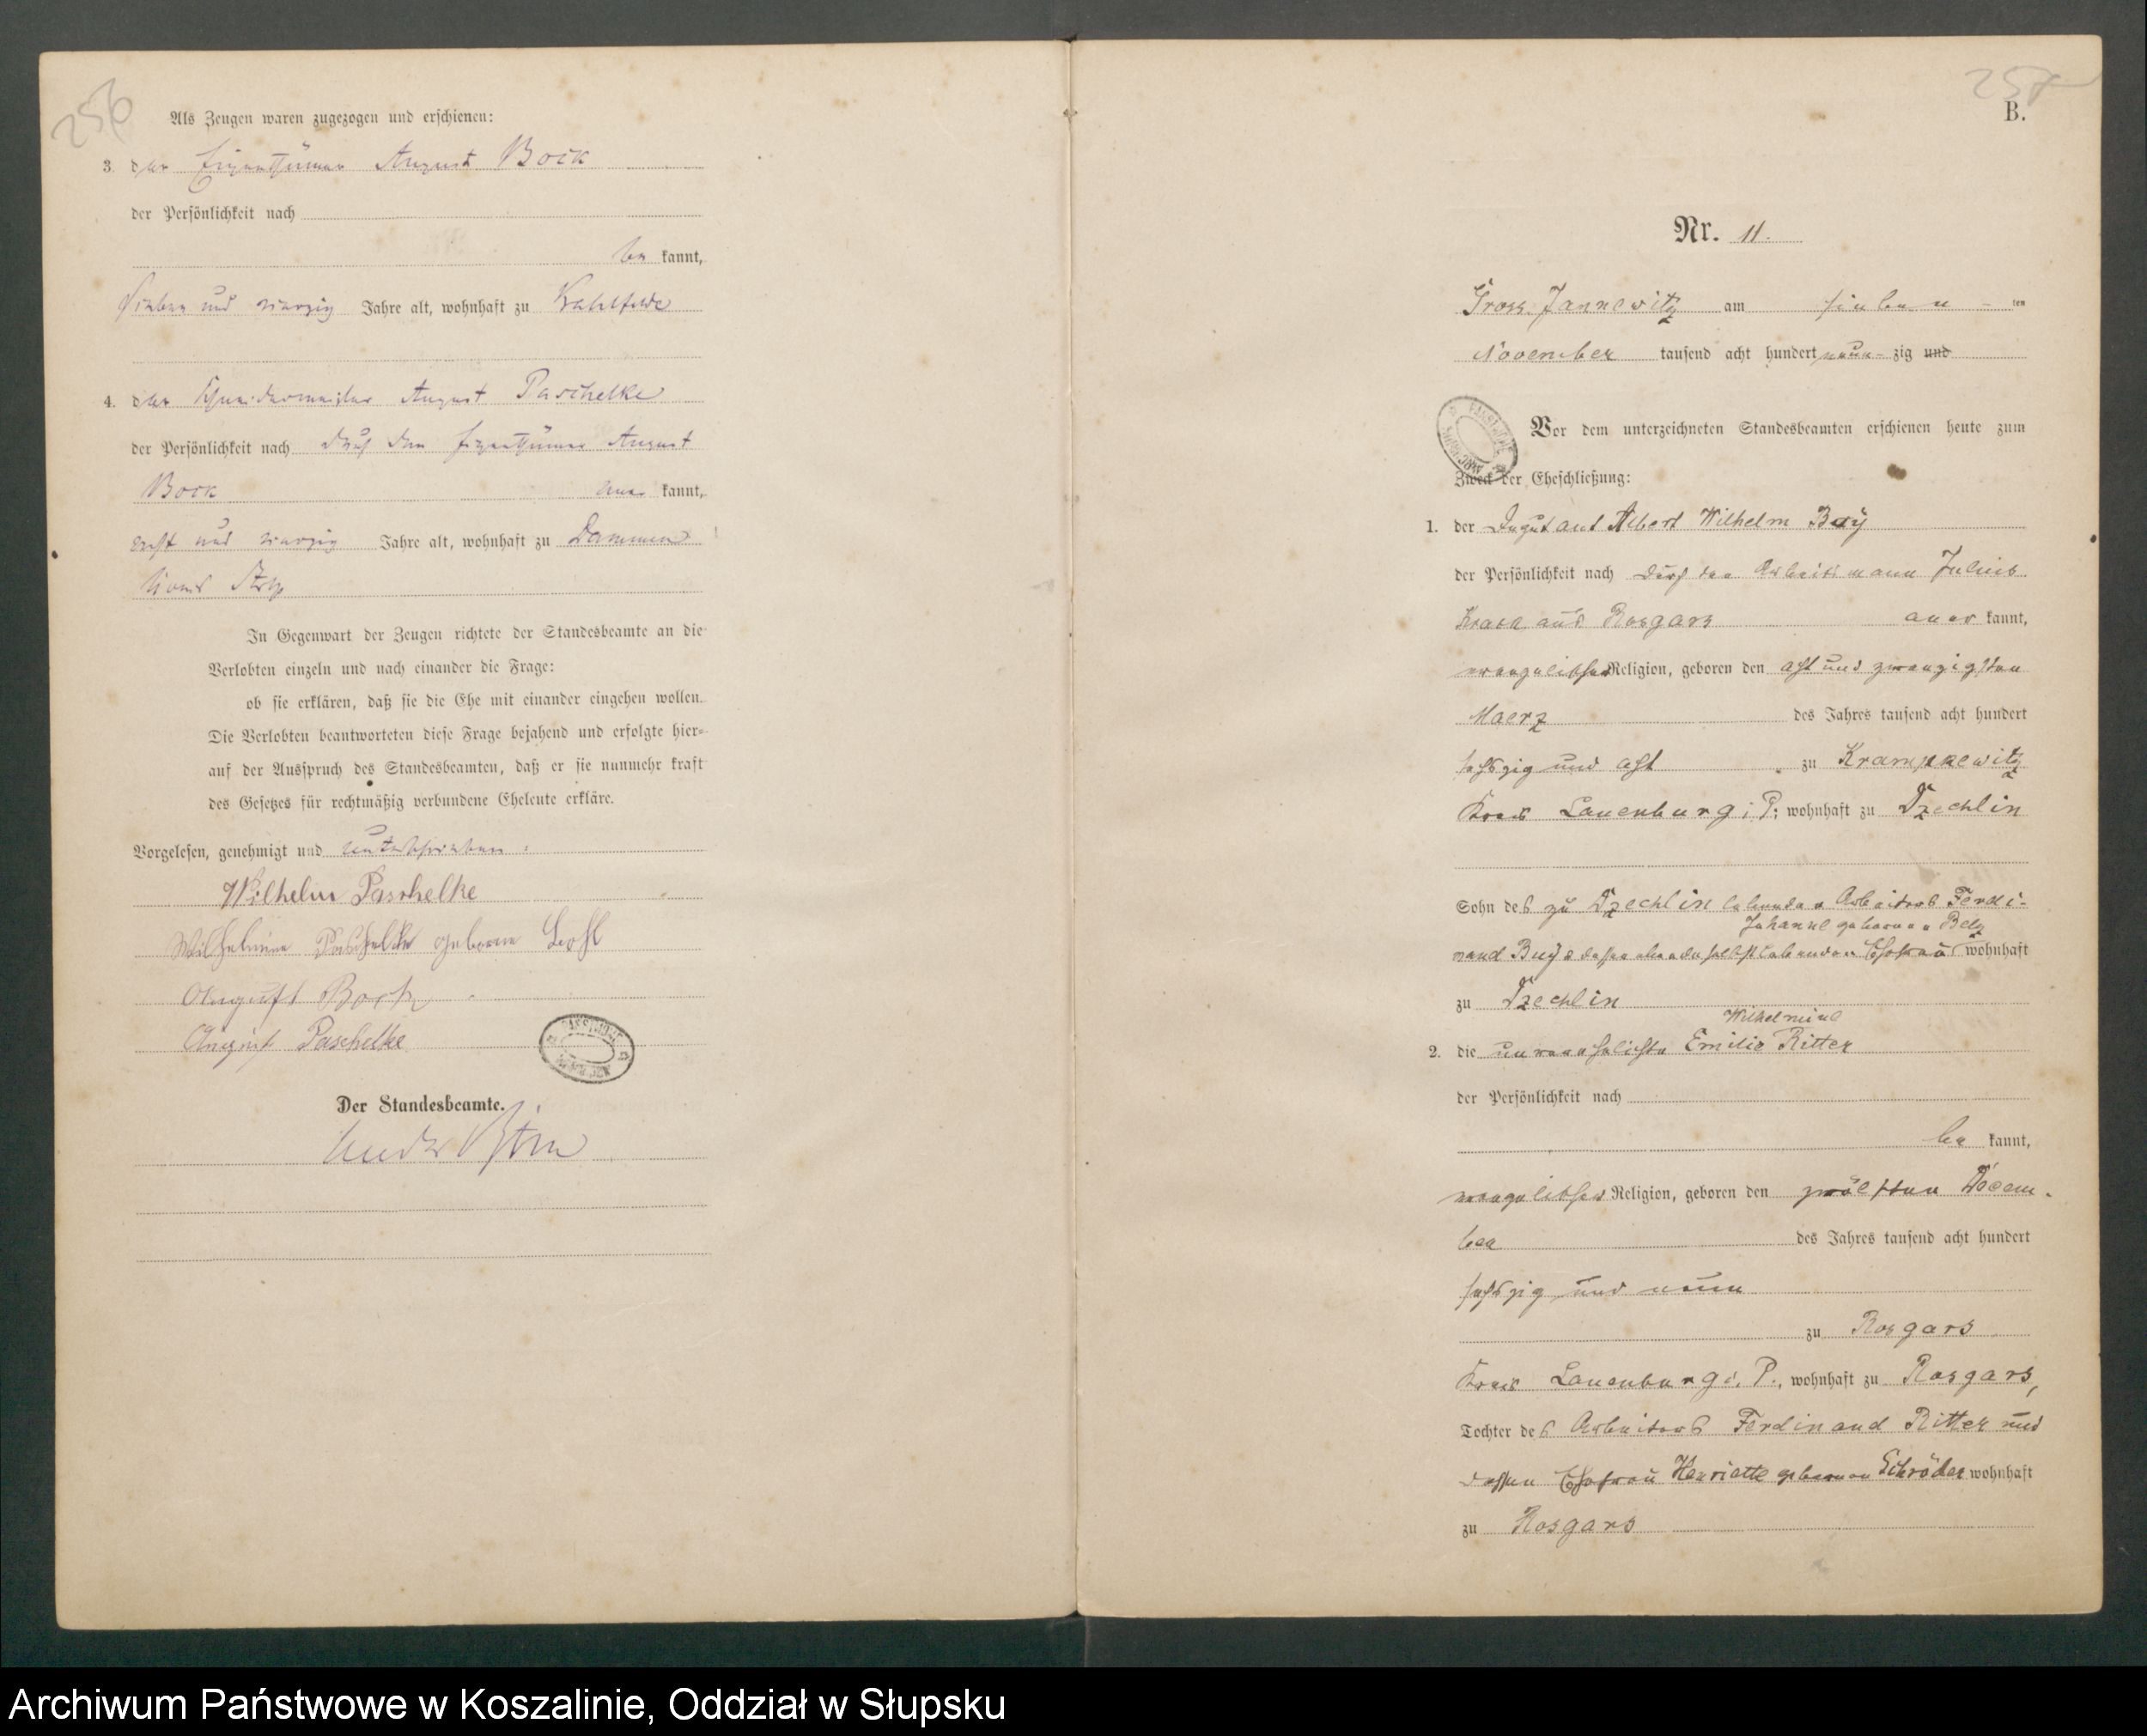 256
Als Zeugen waren zugezogen und erschienen:
3. der Eigenthümer August Bock
der Persönlichkeit nach
be kannt,
sieben und vierzig Jahre alt, wohnhaft zu Kahlfelde
4. der Schneidermeister August Paschelke
der Persönlichkeit nach durch den Eigenthümer August
Bock aner kannt,
acht und vierzig Jahre alt, wohnhaft zu Dammen
Kreis Stolp
In Gegenwart der Zeugen richtete der Standesbeamte an die
Verlobten einzeln und nach einander die Frage:
ob sie erklären, daß sie die Ehe mit einander eingehen wollen.
Die Verlobten beantworteten diese Frage bejahend und erfolgte hier-
auf der Ausspruch des Standesbeamten, daß er sie nunmehr kraft
des Gesetzes für rechtmäßig verbundene Eheleute erkläre.
Vorgelesen, genehmigt und unterschrieben:
Wilhelm Paschelke
Wilhelmine Paschelke geborene
August Bock
August Paschelke
Der Standesbeamte.
257
B.
Nr. 11.
Gross Jannewitz am sieben ten
November tausend acht hundert neun zig und
Vor dem unterzeichneten Standesbeamten erschienen heute zum
Zweck der Eheschließung:
1. der Albert Wilhelm
der Persönlichkeit nach durch den Arbeitsmann Julius
aus Rosgars aner kannt,
evangelischer Religion, geboren den acht und zwanzigsten
Maerz des Jahres tausend acht hundert
sechszig und acht zu Krampkewitz
Kreis Lauenburg i. P. wohnhaft zu Tzechlin
Sohn des zu Tzechlin lebenden Arbeiters Ferdi-
Johanne geborenen Belz
nand und dessen ebendaselbst lebenden Ehefrau wohnhaft
zu Tzechlin
Wilhelmine
2. die unverehelichte Emilie Ritter
der Persönlichkeit nach
be kannt,
evangelischer Religion, geboren den zwölften Decem-
ber des Jahres tausend acht hundert
sechszig und neun
zu Rosgars
Kreis Lauenburg i. P., wohnhaft zu Rosgars,
Tochter des Arbeiters Ferdinand Ritter und
dessen Ehefrau Henriette geborenen Schröder wohnhaft
zu Rosgars
Archiwum Państwowe w Koszalinie, Oddział w Słupsku